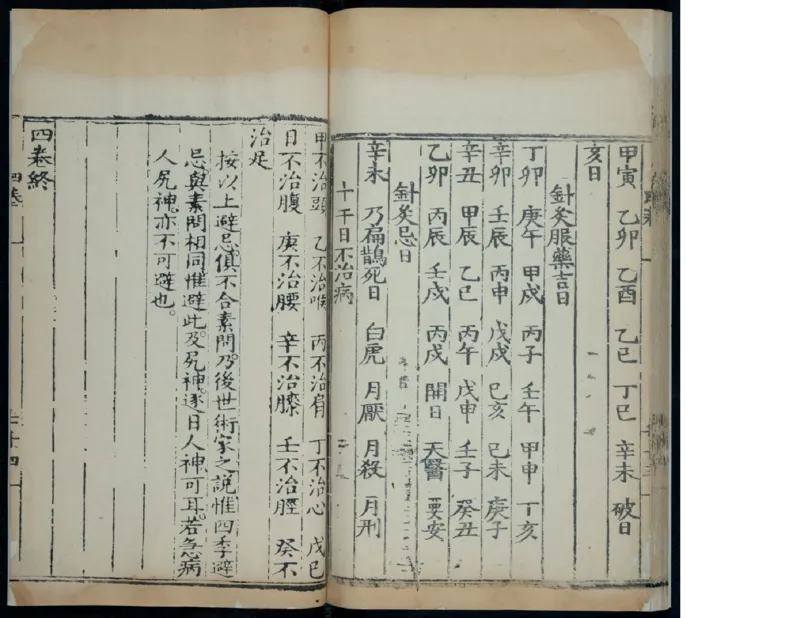 甲寅 乙卯 乙酉 乙巳 丁巳 辛未 破日
亥日
針灸服藥吉日
丁卯 庚午 甲戌 丙子 壬午 甲申 丁亥
辛卯 壬辰 丙申 戊戌 己亥 己未 庚子
辛丑 甲辰 乙巳 丙午 戊申 壬子 癸丑
乙卯 丙辰 壬戌 丙戌 開日 天醫 要安
針灸忌日
辛未 乃扁鵲死日 白虎 月厭 月殺 月刑
十干日不治病
甲不治頭 乙不治喉 丙不治肩 丁不治心 戊己
日不治腹 庚不治腰 辛不治膝 壬不治脛 癸不
治足
按以上避忌俱不合素問乃後世術家之說惟四季避
忌與素問相同惟避此及尻神逐日人神可耳若急病
人尻神亦不可避也
四卷終
四卷
二十四